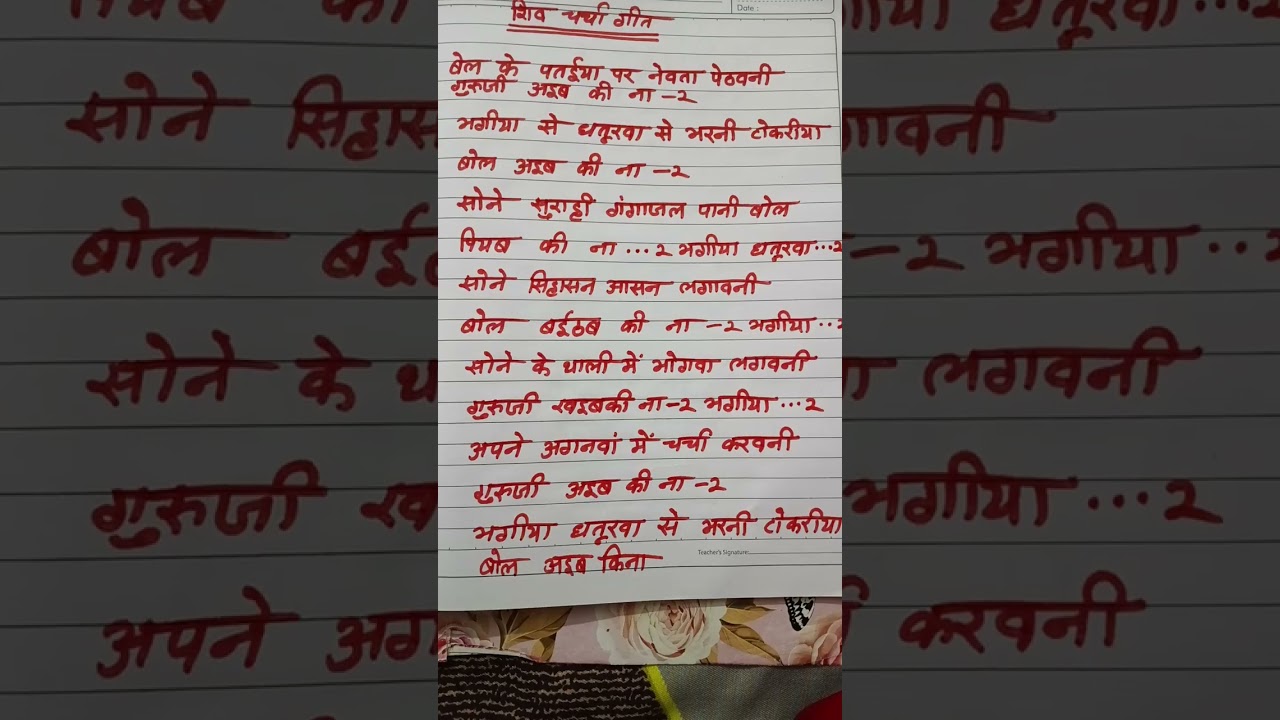 Date :
शिव चर्चा गीत
बेल के पतईया पर नेवता पेठवनी
गुरुजी अइब की ना -२
भगीया से धतूरवा से भरनी टोकरीया
बोल अइब की ना -२
सोने सुराही गंगाजल पानी बोल
पियब की ना ...२ भगीया धतूरवा...२
सोने सिहासन आसन लगावनी
बोल बईठब की ना -२ भगीया ..२
सोने के थाली में भोगवा लगवनी
गुरुजी खइबकी ना -२ भगीया ...२
अपने अगनवां में चर्चा करवनी
गुरुजी अइब की ना -२
भगीया धतूरवा से भरनी टोकरीया
Teacher's Signature:
बोल अइब किना